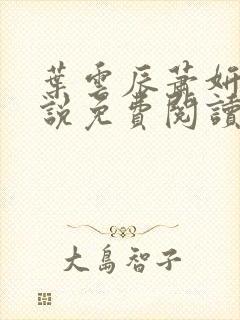 葉雲辰蕭妍
說免費閱讀
大島智子